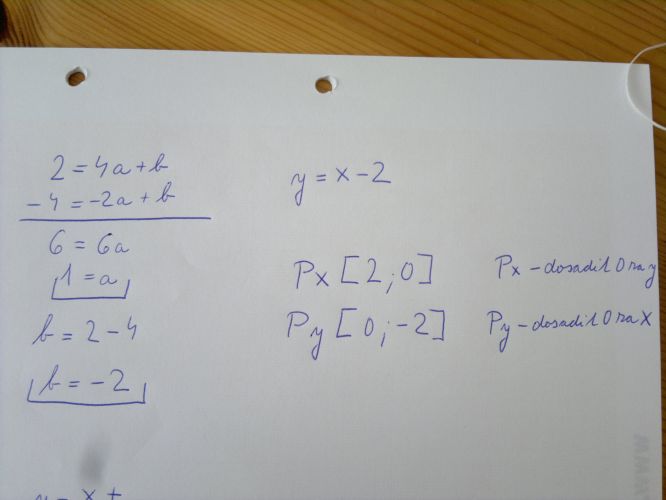 2 = 4a + b
-4 = -2a + b
6 = 6a
1 = a
b = 2 - 4
b = -2
y = x - 2
Px [2; 0]
Px - dosadit 0 za y
Py [0; -2]
Py - dosadit 0 za x